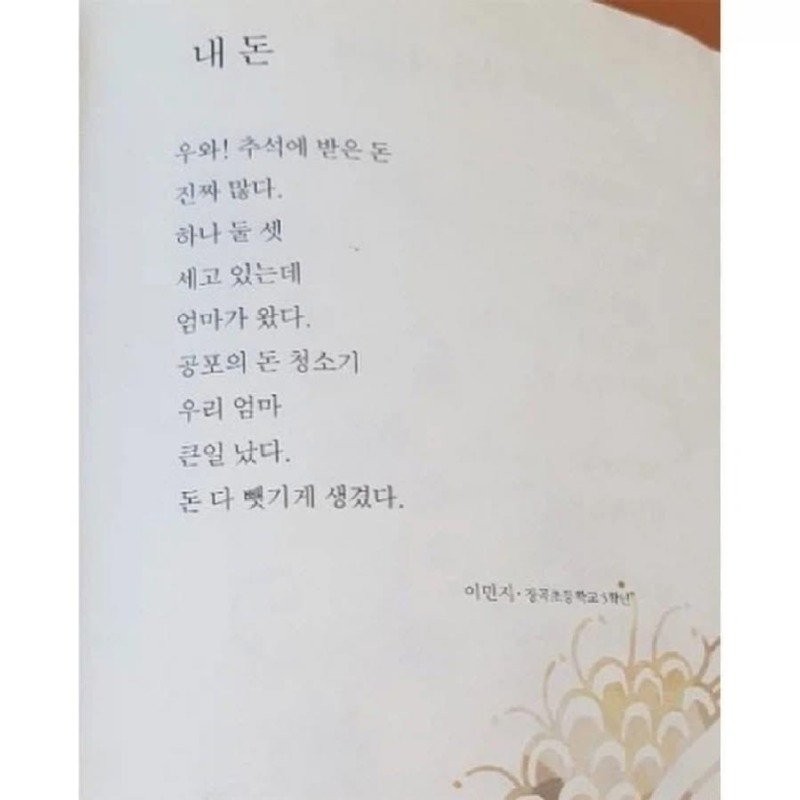 내 돈
우와! 추석에 받은 돈
진짜 많다.
하나 둘 셋
세고 있는데
엄마가 왔다.
공포의 돈 청소기
우리 엄마
큰일 났다.
돈 다 뺏기게 생겼다.
이민지 · 장곡초등학교 3학년